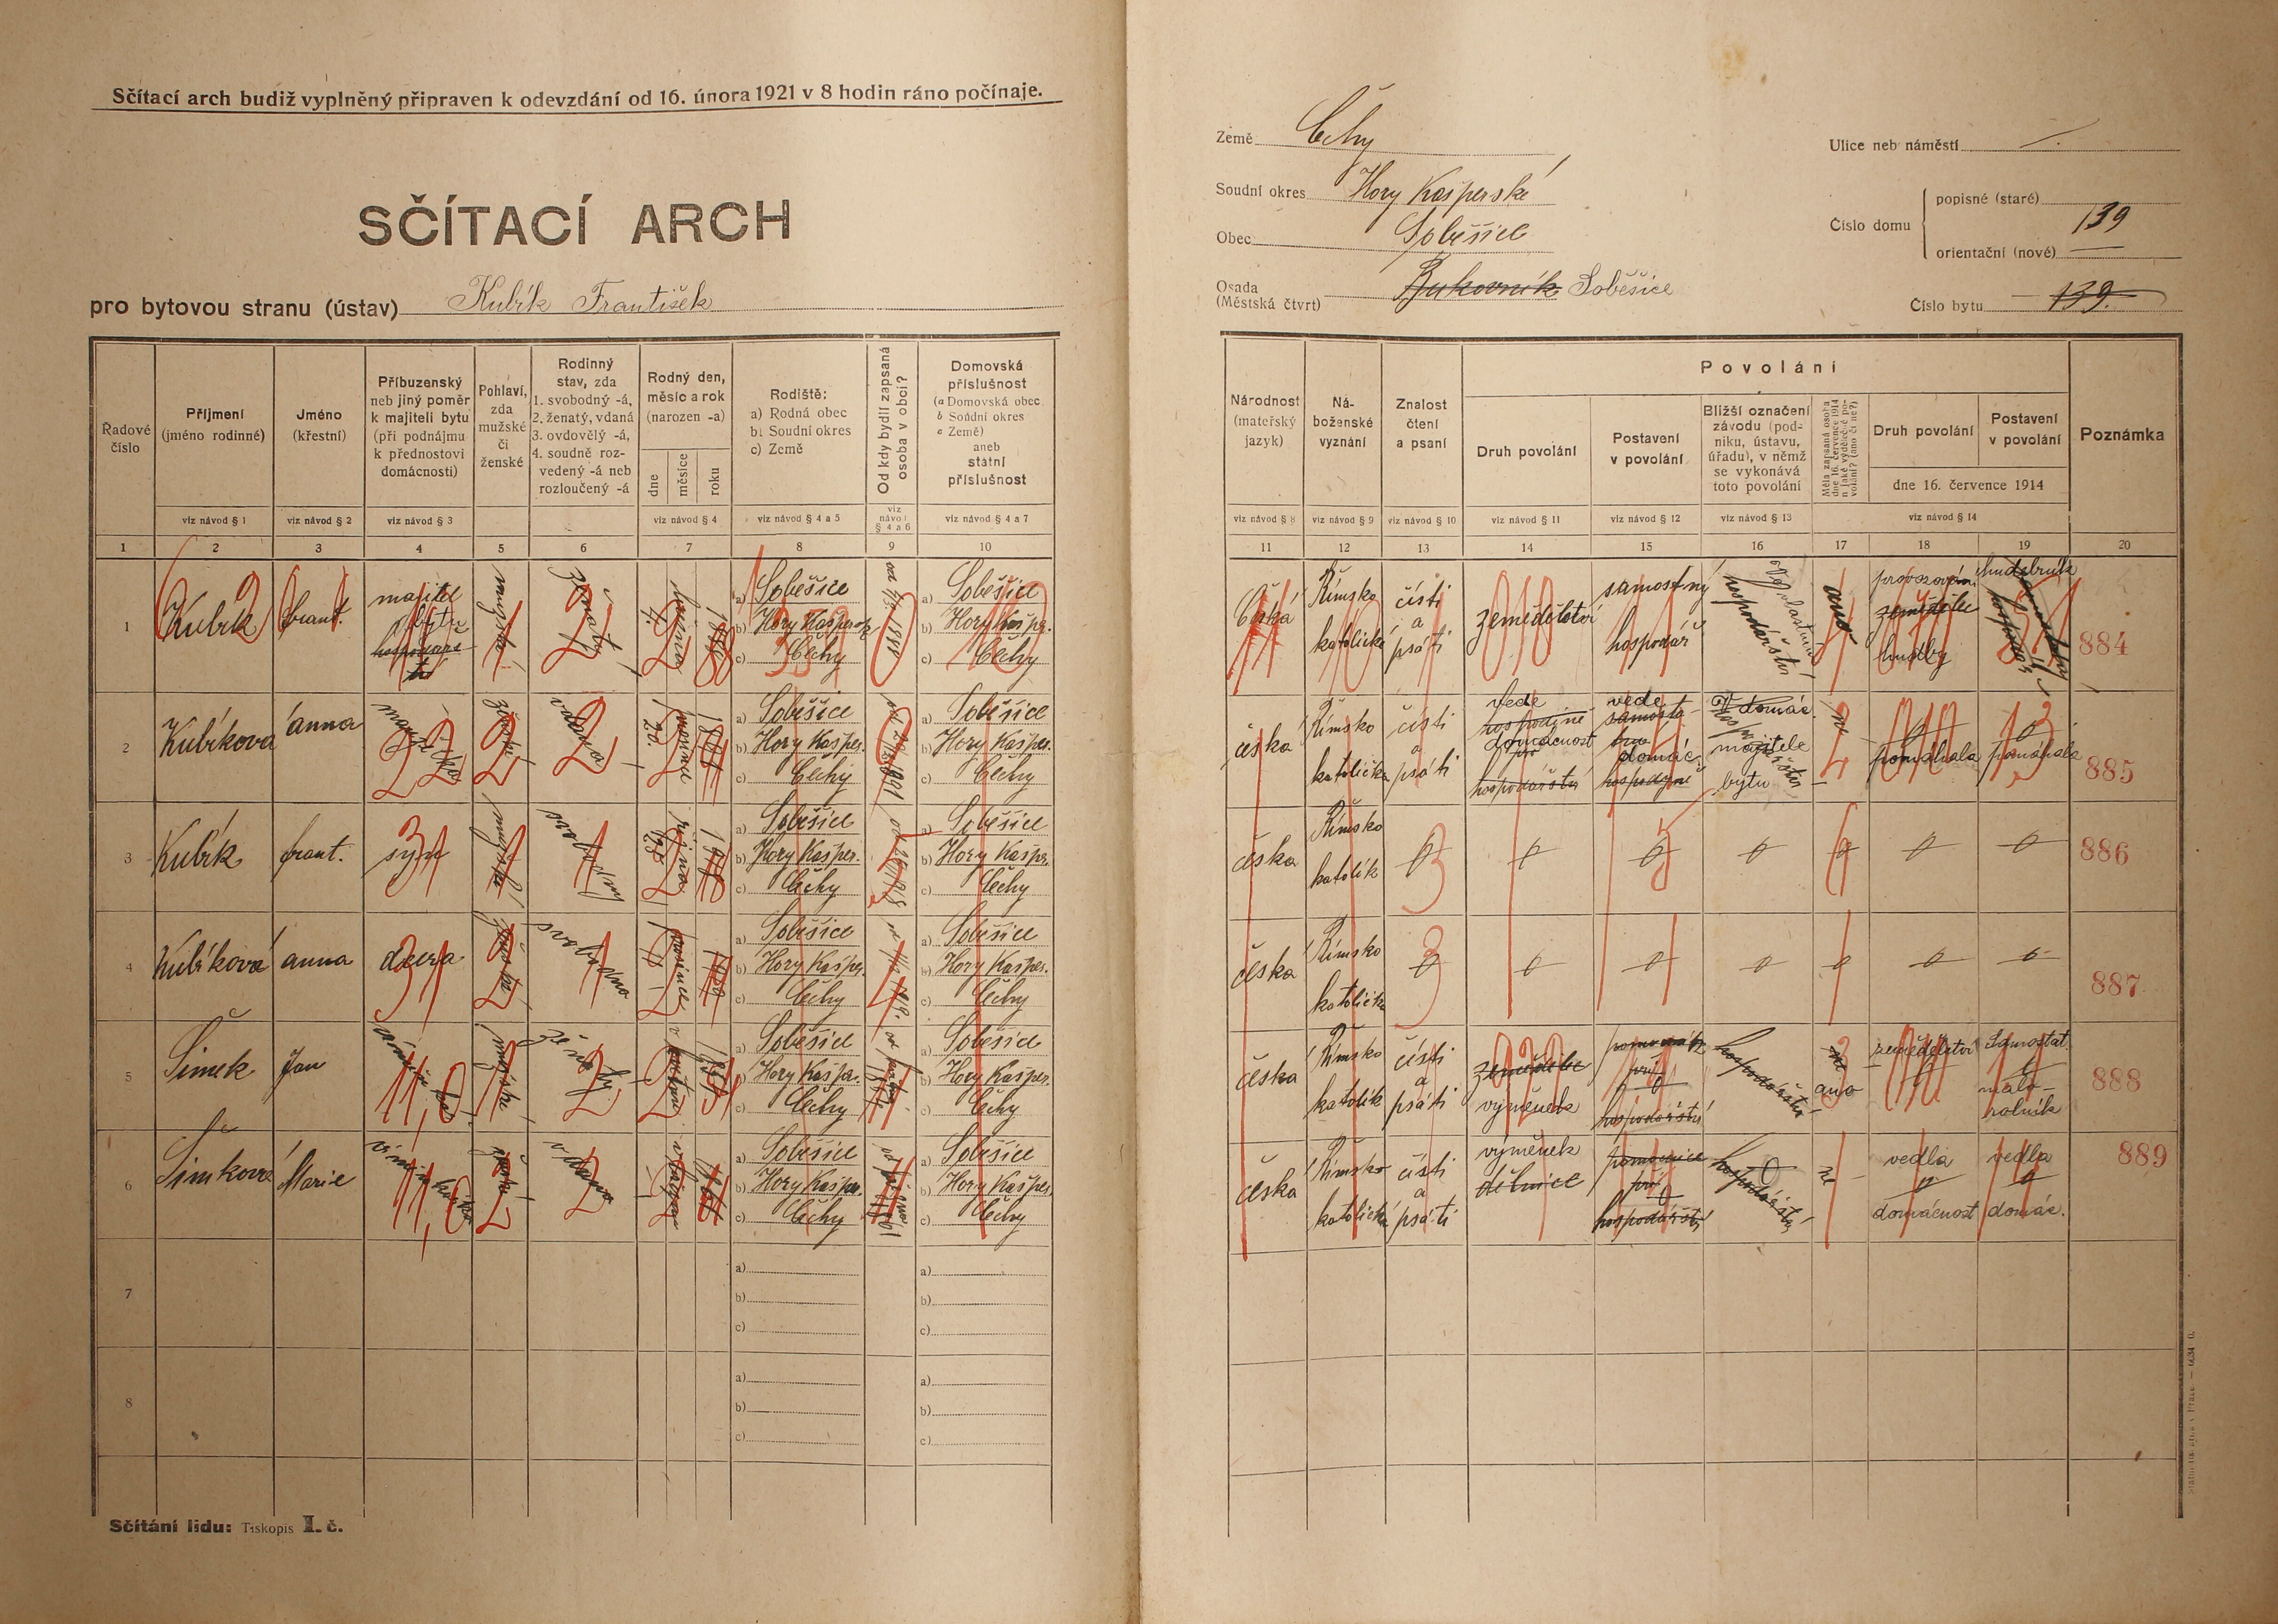 Sčítací arch budiž vyplněný připraven k odevzdání od 16. února 1921 v 8 hodin ráno počínaje.
SČÍTACÍ ARCH
pro bytovou stranu (ústav) Kubík František
Země Čechy
Soudní okres Hory Kašperské
Obec Soběšice
Osada (Městská čtvrt) Bukovník Soběšice
Ulice neb náměstí
Číslo domu
popisné (staré) 139
orientační (nové)
Číslo bytu 139.
Řadové číslo
Příjmení (jméno rodinné)
Jméno (křestní)
Příbuzenský neb jiný poměr k majiteli bytu (při podnájmu k přednostovi domácnosti)
Pohlaví, zda mužské či ženské
Rodinný stav, zda 1. svobodný -á, 2. ženatý, vdaná 3. ovdovělý -á, 4. soudně rozvedený -á neb rozloučený -á
Rodný den, měsíc a rok (narozen -a)
dne měsíce roku
Rodiště: a) Rodná obec b) Soudní okres c) Země
Od kdy bydlí zapsaná osoba v obci?
Domovská příslušnost (a Domovská obec b Soudní okres c Země) aneb státní příslušnost
Národnost (mateřský jazyk)
Náboženské vyznání
Znalost čtení a psaní
Povolání
Druh povolání
Postavení v povolání
Bližší označení závodu (podniku, ústavu, úřadu), v němž se vykonává toto povolání
Druh povolání
Postavení v povolání
dne 16. července 1914
Poznámka
viz návod § 1 viz návod § 2 viz návod § 3 viz návod § 4 viz návod § 4 a 5 viz návod § 4 a 6 viz návod § 4 a 7
viz návod § 8 viz návod § 9 viz návod § 10 viz návod § 11 viz návod § 12 viz návod § 13 viz návod § 14
1 2 3 4 5 6 7 8 9 10 11 12 13 14 15 16 17 18 19 20
1 Kubík frant. majitel bytu mužské ženatý 4. 1888
a) Soběšice b) Hory Kašpersk c) Čechy
a) Soběšice b) Hory Kašper. c) Čechy
Česká Římsko katolické čísti a psáti zemědělství samostný hospodář hospodářství ano zemědělec hudby 884
2 Kubíková anna manželka ženské vdaná 20.
a) Soběšice b) Hory Kašper. c) Čechy
a) Soběšice b) Hory Kašper. c) Čechy
česka Římsko katolička čísti a psáti vede hospodyně domácnost hospodářství vede domác. hospodyně V domác. majitele bytu ne pomáhala pomáhala 885
3 Kubík frant. syn mužské svobodný října
a) Soběšice b) Hory Kašper. c) Čechy
a) Soběšice b) Hory Kašpr. c) Čechy
česka Římsko katolík 0 0 0 0 0 0 0 886
4 Kubíková anna dcera ženské svobodna prosince 1920
a) Soběšice b) Hory Kašper. c) Čechy
a) Soběšice b) Hory Kašper. c) Čechy
česka Římsko katolička 0 0 0 0 0 0 0 887
5 Šimek Jan mužské ženatý
a) Soběšice b) Hory Kašpr. c) Čechy
a) Soběšice b) Hory Kašper. c) Čechy
česka Římsko katolík čísti a psáti zemědělec výměnek při hospodářství hospodářství ano zemědělství Samostat. malorolník 888
6 Šimková Marie ženské vdana
a) Soběšice b) Hory Kašper. c) Čechy
a) Soběšice b) Hory Kašper. c) Čechy
česka Římsko katolická čísti a psáti výměnek dělnice pomocnice při hospodářství hospodářství ne vedla domácnost vedla domác. 889
7
a) b) c)
a) b) c)
8
a) b) c)
a) b) c)
Sčítání lidu: Tiskopis I. č.